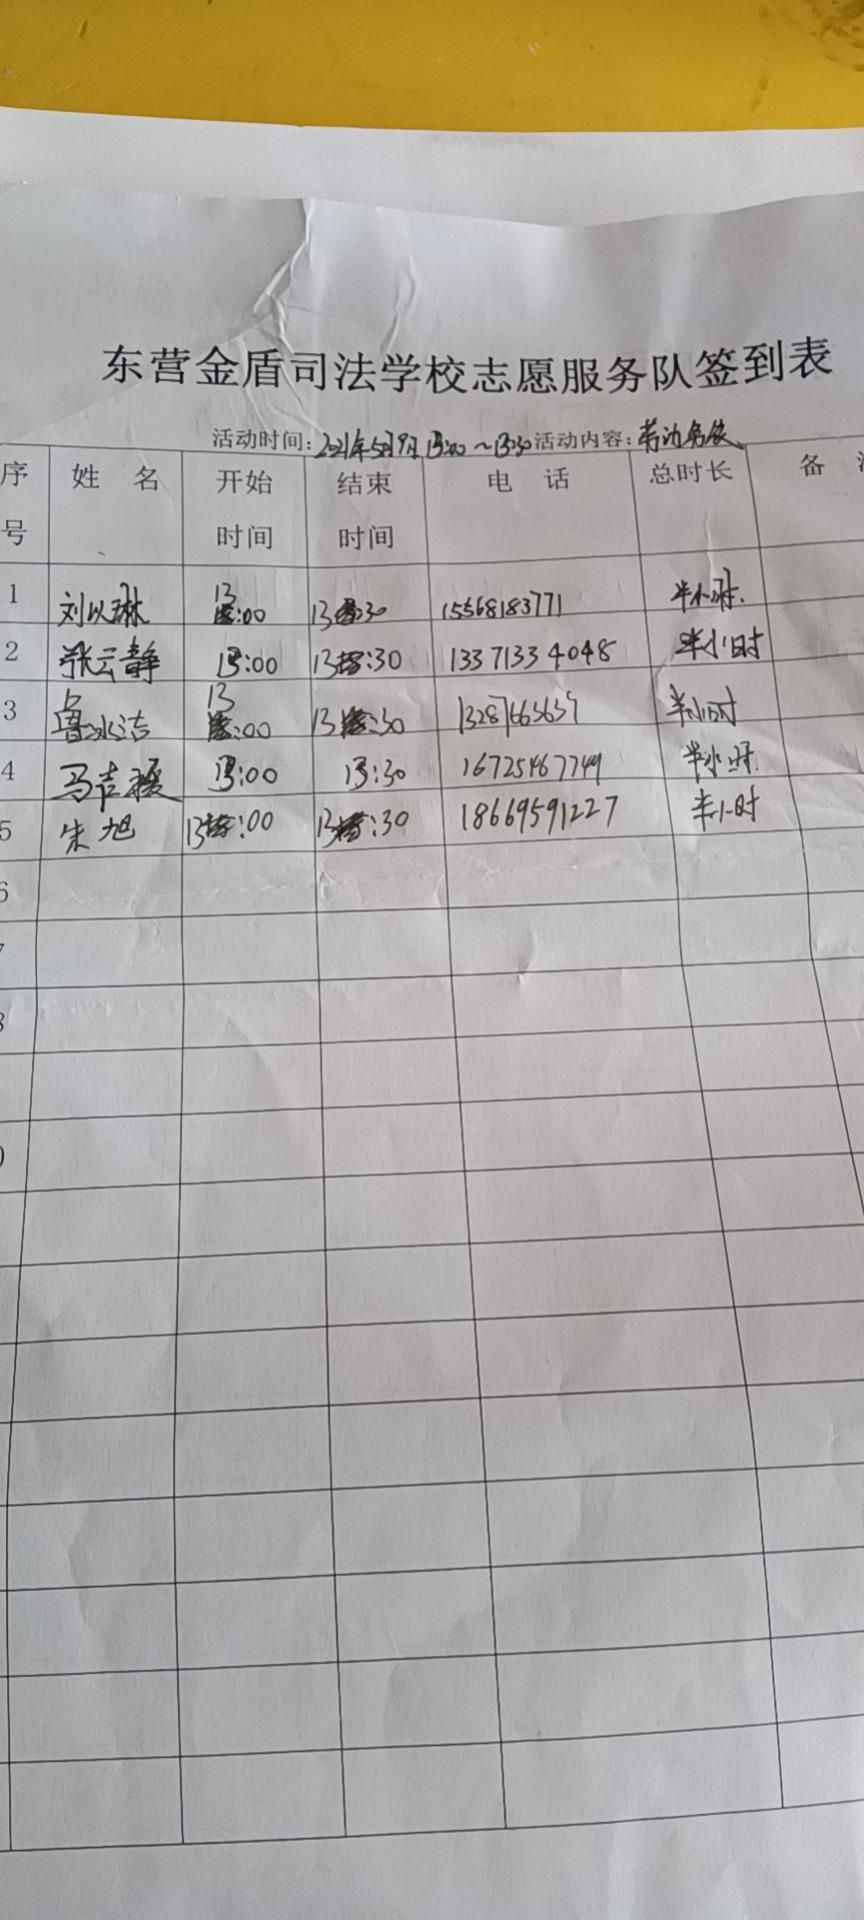 东营金盾司法学校志愿服务队签到表
活动时间:2021年5月9日13:00～13:30活动内容:劳动
序号 姓 名 开始时间 结束时间 电 话 总时长 备
1 刘以琳 13:00 13:30 15568183771 半小时.
2 张云静 13:00 13:30 13371334048 半小时
3 鲁冰洁 13:00 13:30 13287665657 半小时
4 马吉 13:00 13:30 16725467749 半小时.
5 朱旭 13:00 13:30 18669591227 半小时
6
7
8